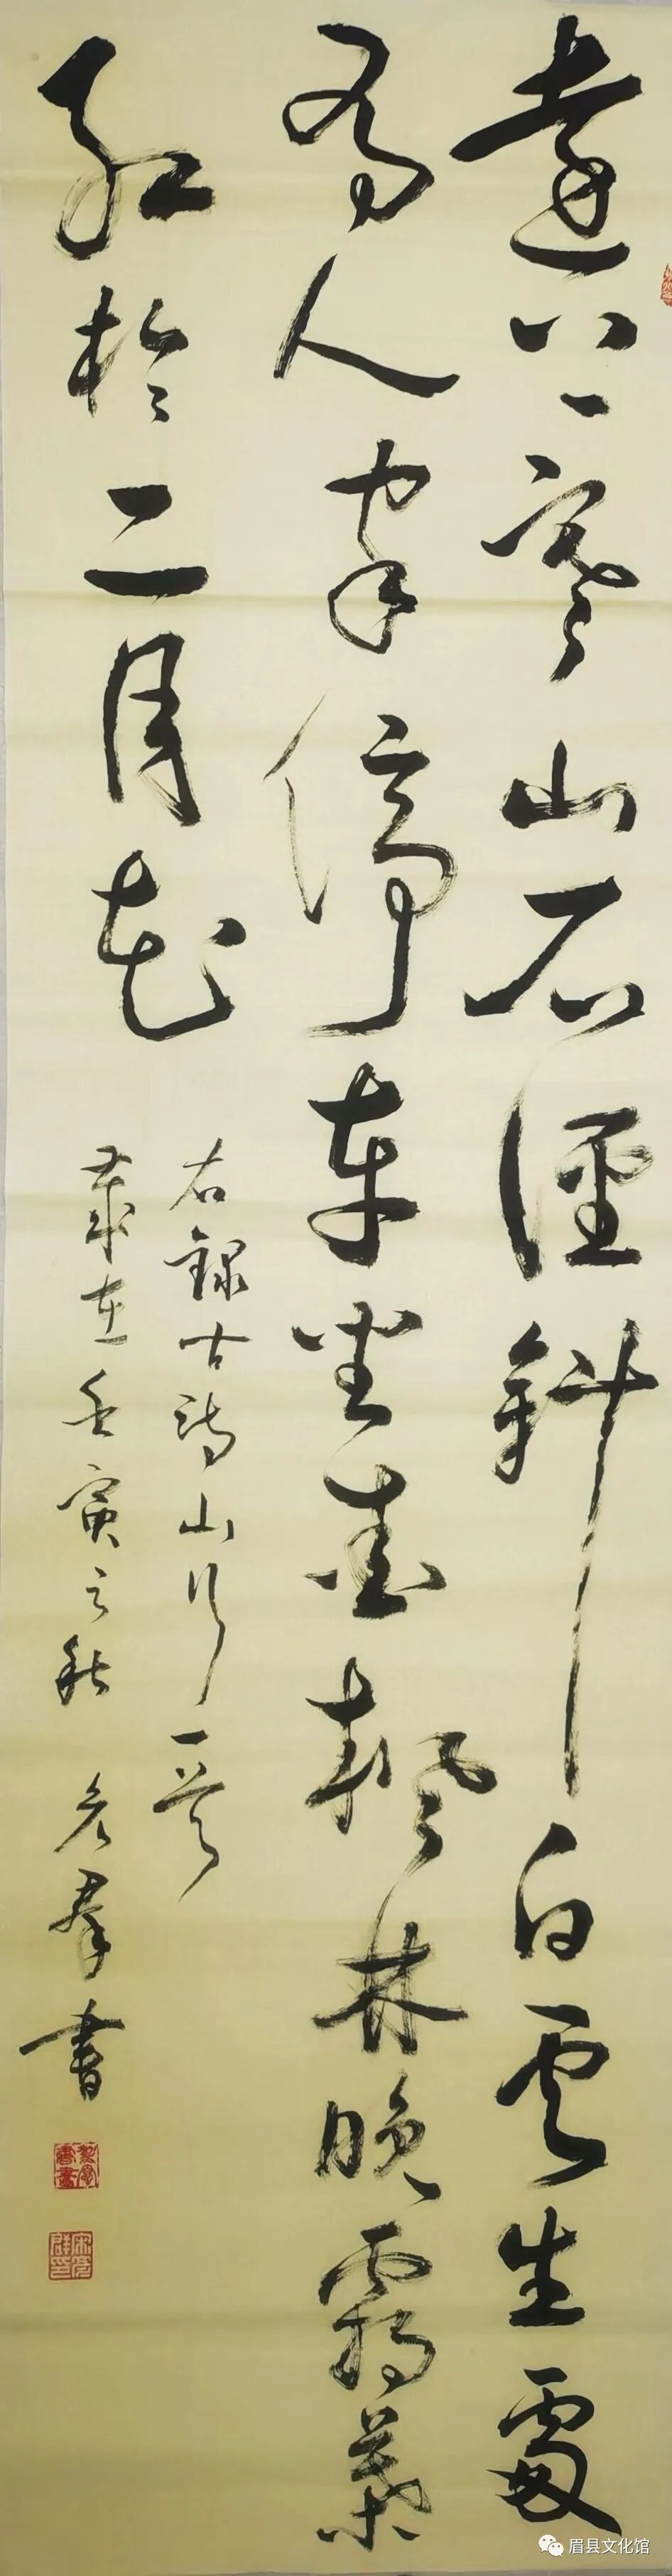 遠上寒山石徑斜白雲生處
有人家停車坐愛楓林晚霜葉
紅於二月花
右錄古詩山行一首
歲在壬寅之秋 羣書
眉县文化馆